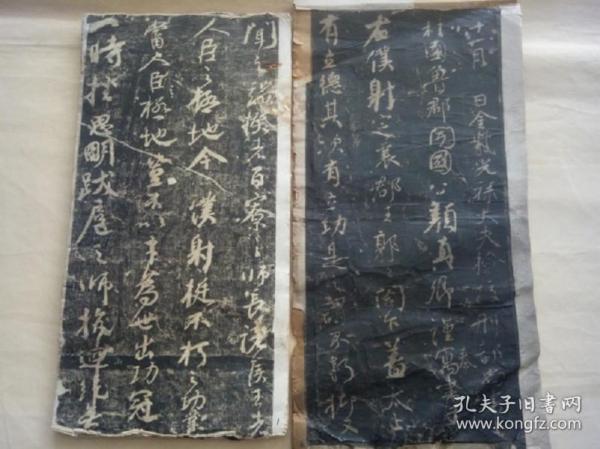 十一月 日金紫光祿大夫檢校刑部尚
柱國魯郡開國公顏真卿謹寓書
右僕射定襄郡王郭公閣下蓋太上
有立德其次有立功是之謂不朽抑又
聞之端揆者百寮之師長諸侯王者
人臣之極地今僕射挺不朽之功業
當人臣極地豈不以才為世出功冠
一時挫思明跋扈之師抗迴紇
孔夫子旧书网